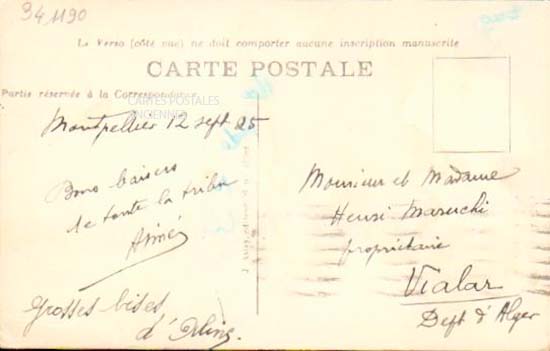 941190
Le Verso (côté vue) ne doit comporter aucune inscription manuscrite
CARTE POSTALE
Partie réservée à la Correspondance
CARTES POSTALES
ANCIENNES
Montpellier 12 sept 25
Bons baisers
de toute la tribu
Aimé
Grosses bises
d'
Monsieur et Madame
Henri
propriétaire
Vialar
Dept d'Alger